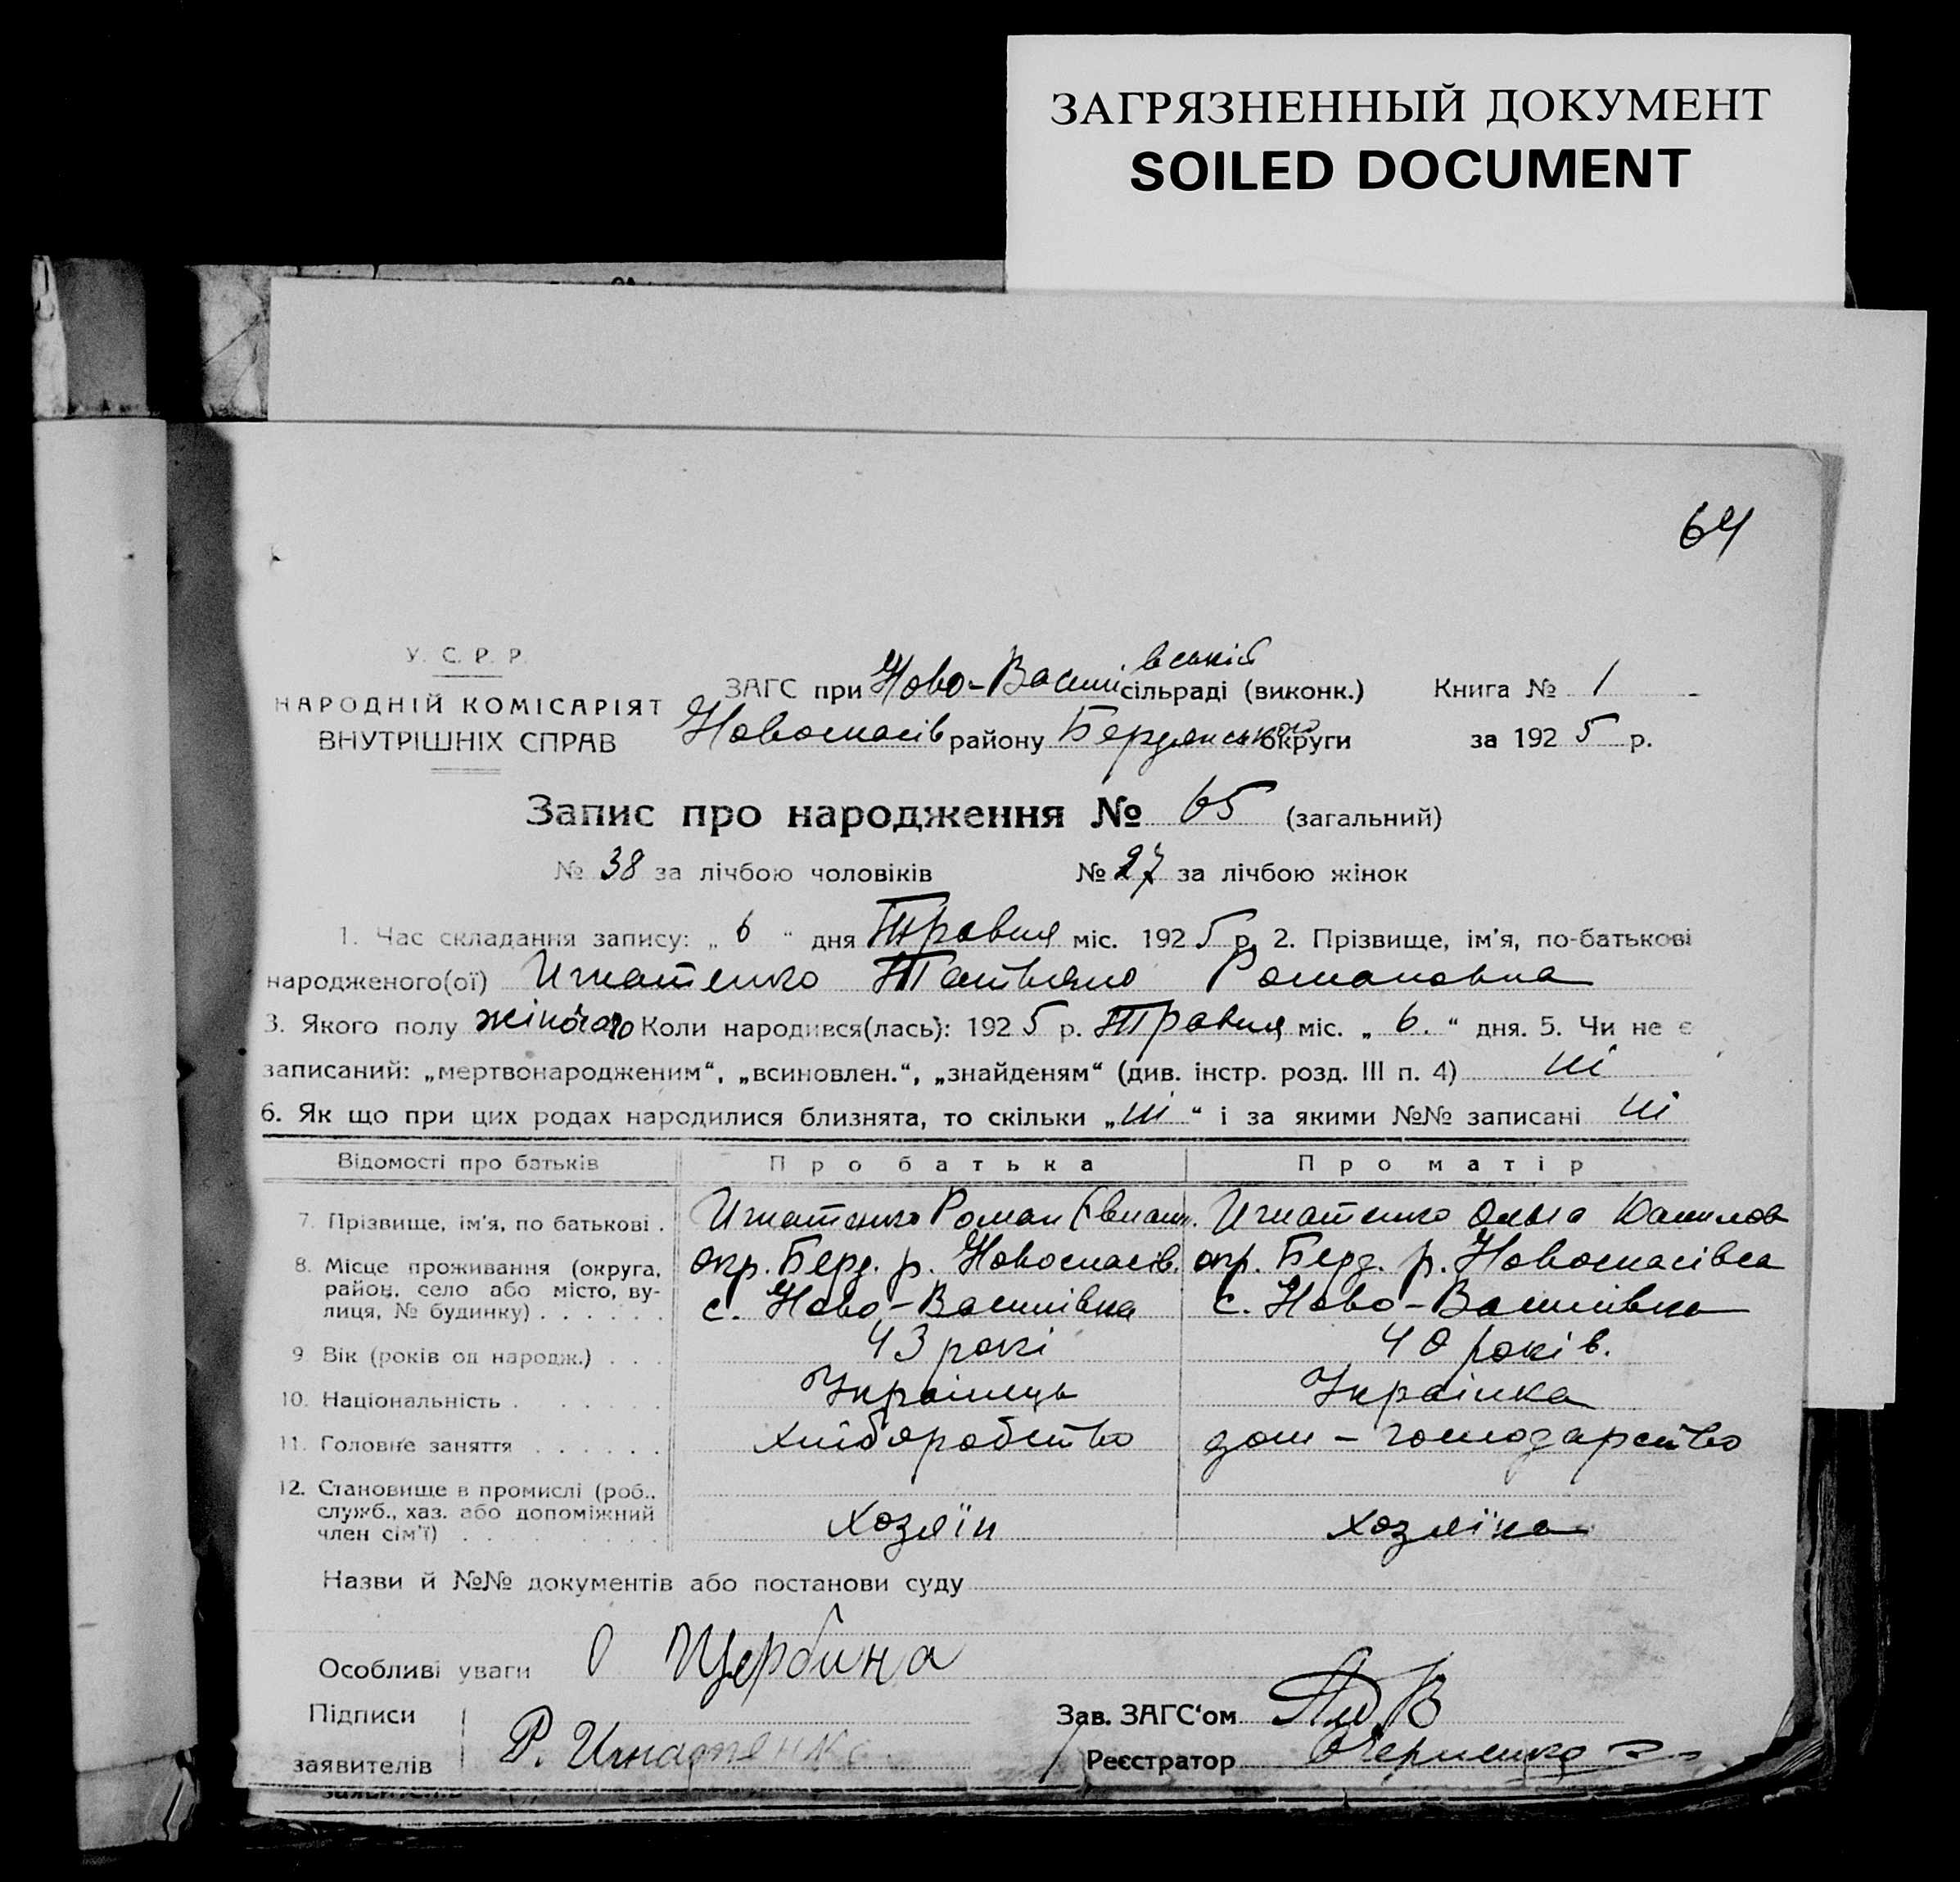 ЗАГРЯЗНЕННЫЙ ДОКУМЕНТ
SOILED DOCUMENT
64
У. С. Р. Р.
НАРОДНІЙ КОМІСАРІЯТ
ВНУТРІШНІХ СПРАВ
ЗАГС при Ново-Василівській сільраді (виконк.)
Новоспасів району Бердянського округи
Книга № 1
за 1925 р.
Запис про народження № 65 (загальний)
№ 38 за лічбою чоловіків № 27 за лічбою жінок
1. Час складання запису: „ 6 “ дня Травня міс. 1925 р. 2. Прізвище, ім'я, по-батькові
народженого(ої) Игнатенко Татьяна Романовна
3. Якого полу жіночого Коли народився(лась): 1925 р. Травня міс. „ 6. “ дня. 5. Чи не є
записаний: „мертвонародженим“, „всиновлен.“, „знайденям“ (див. інстр. розд. III п. 4) ні
6. Як що при цих родах народилися близнята, то скільки „ні“ і за якими №№ записані ні
Відомості про батьків Про батька Про матір
7. Прізвище, ім'я, по батькові . Игнатенко Роман Игнатенко Ольга Данилов
8. Місце проживання (округа, район, село або місто, вулиця, № будинку) . . . . . . окр. Берд. р. Новоспасів. окр. Берд. р. Новоспасівка
с. Ново-Василівка с. Ново-Василівка
9. Вік (років од народж.) . . . 43 рокі 40 років.
10. Національність . . . . . . Українець Українка
11. Головне заняття . . . . . . Хліборобство дом-господарство
12. Становище в промислі (роб., служб., хаз. або допоміжний член сім'ї) . . . . . Хозяїн хозяїка
Назви й №№ документів або постанови суду
Особливі уваги О Щербина
Підписи
заявителів Р. Игнатенко
Зав. ЗАГС‘ом
Реєстратор